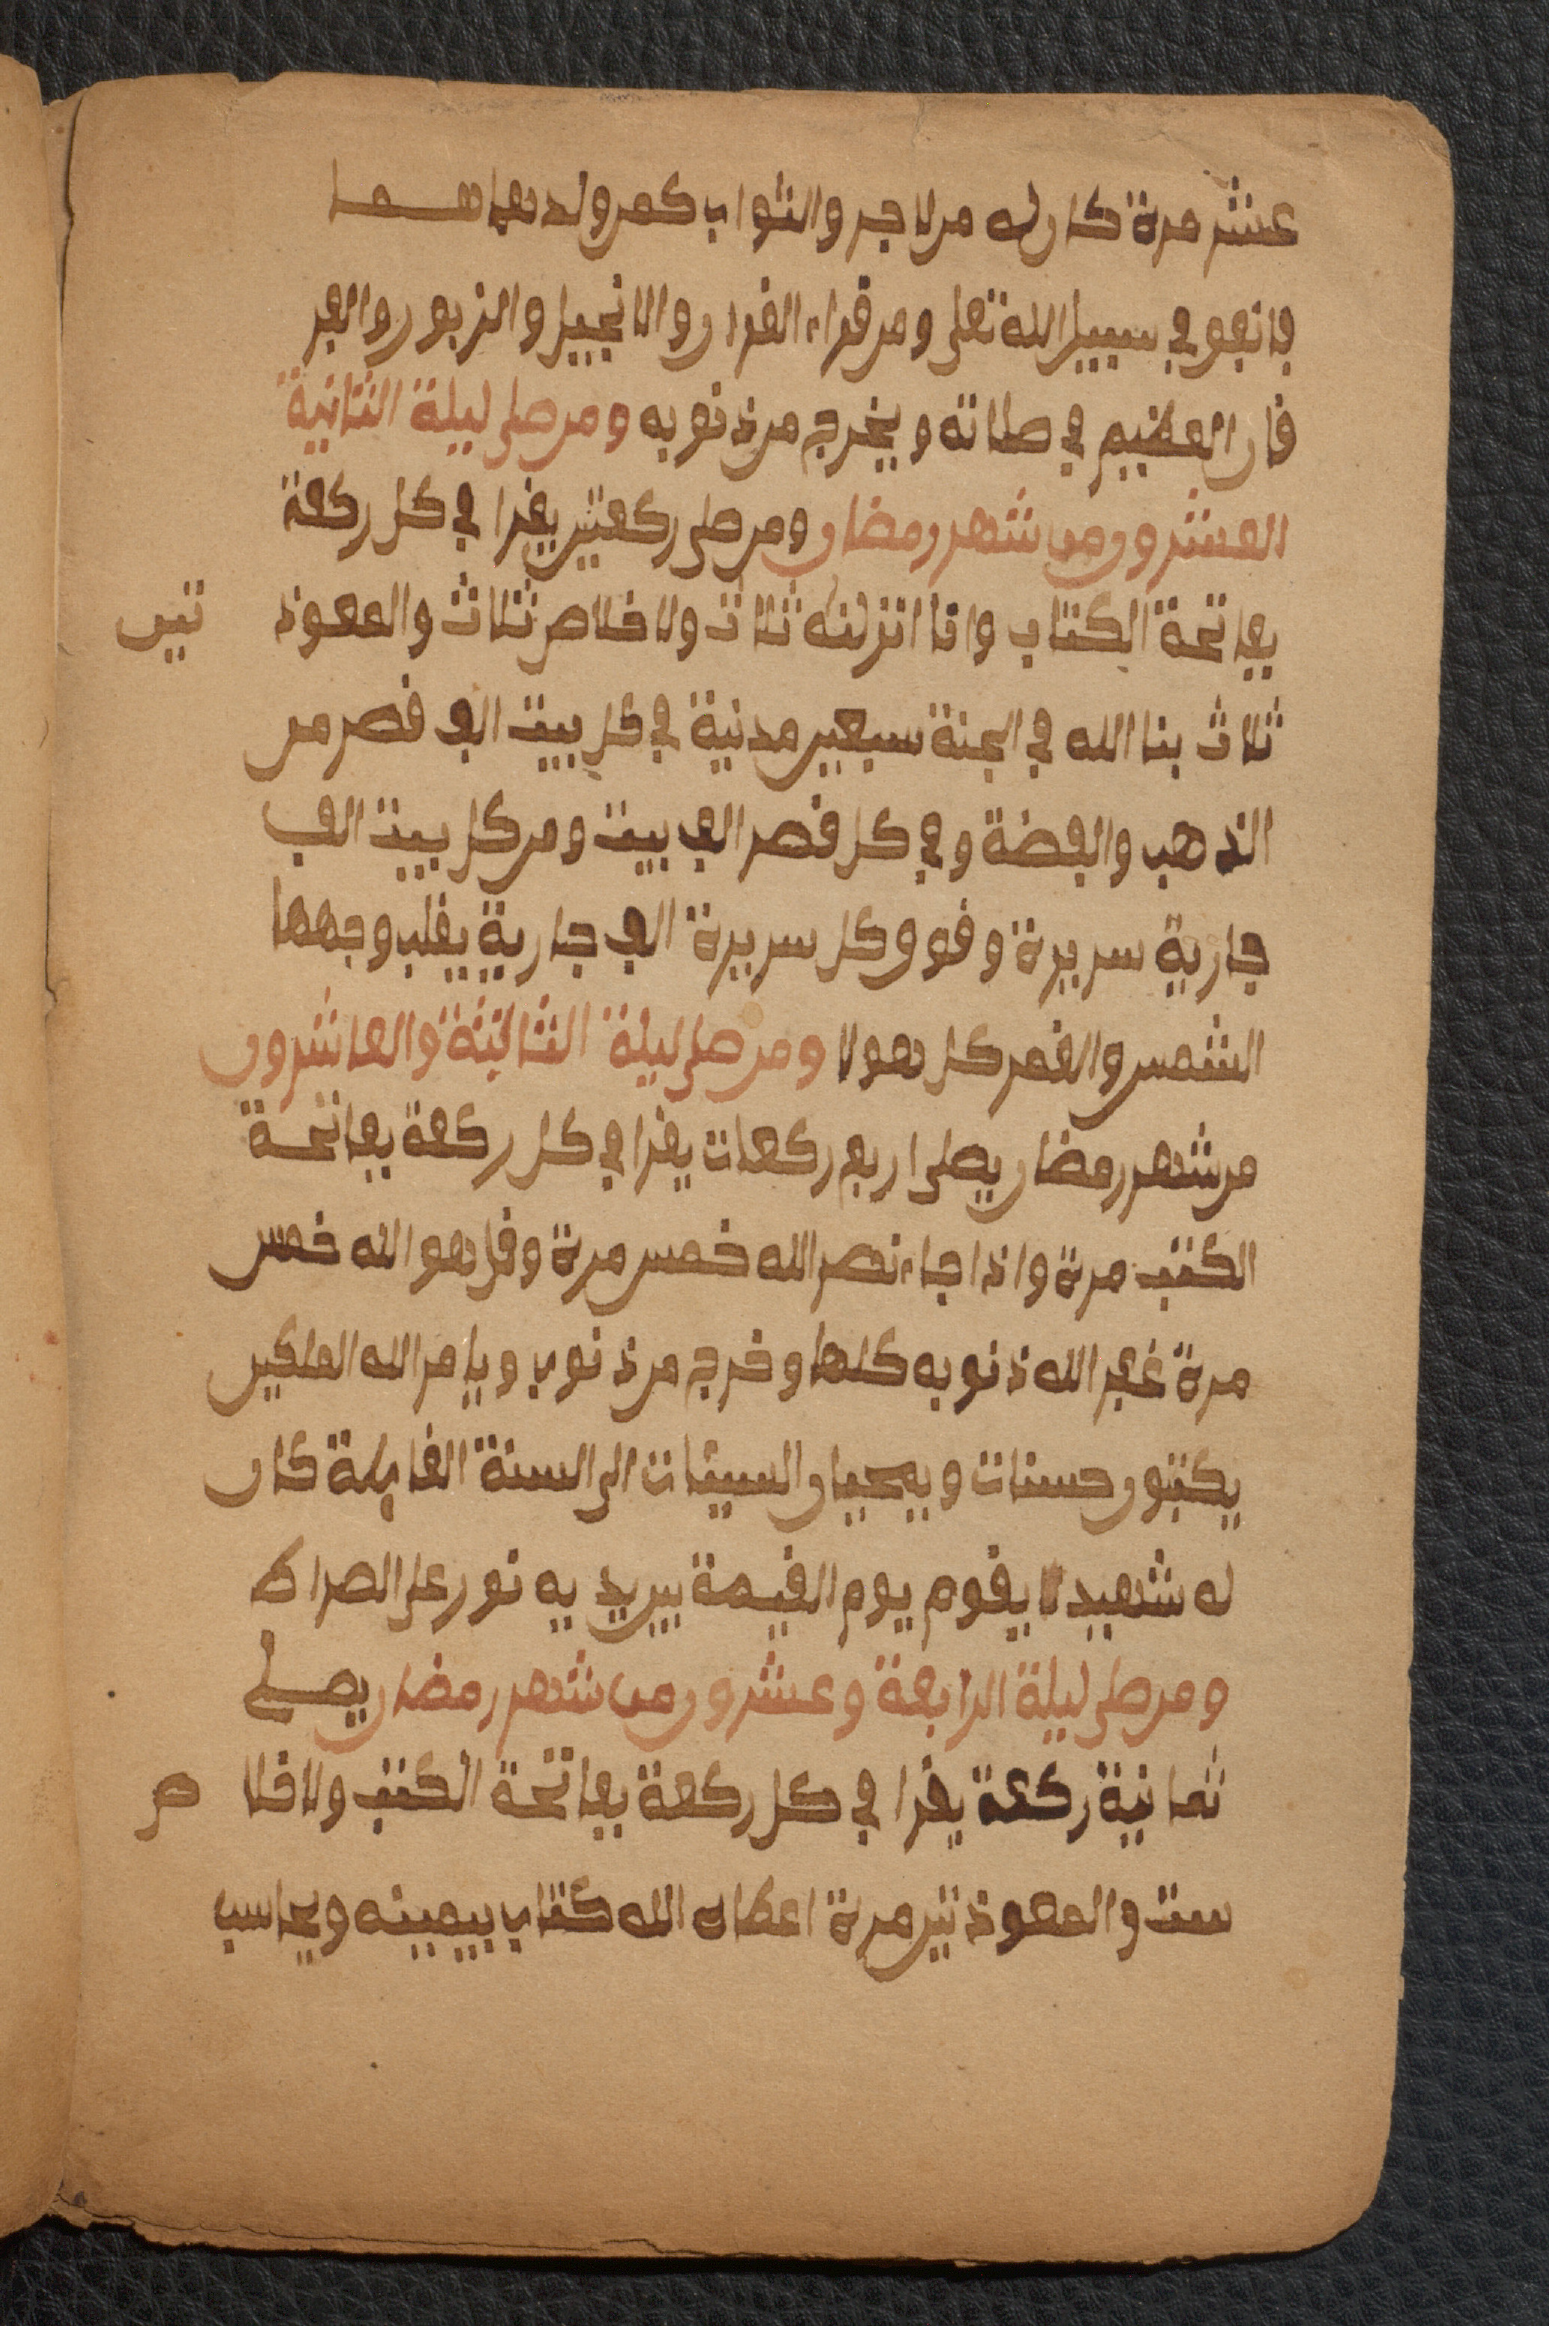 عشر مرة كان له من لاجر والثواب كمن ولد
فانفق في سبيل الله تعلى ومن قراء القران والانجيل والزبور والفر
قان العظيم في صلاته ويخرج من ذنوبه ومن صلى ليلة الثانية
العشرون من شهر رمضان ومن صلى ركعتين يقرا في كل ركعة
بفاتحة الكتاب وانا انزلنه ثلاث ولاخلاص ثلاث والمعوذ تين
ثلاث بنا الله في الجنة سبعين مدنية في كل بيت الف قصر من
الذهب والفضة وفي كل قصر الف بيت ومن كل بيت الف
جارية سريرة وفوق كل سريرة الف جارية يقلب وجهها
الشمس والقمر كل هولا ومن صلى ليلة الثالثة والعاشرون
من شهر رمضان يصلى اربع ركعات يقرا في كل ركعة بفاتحة
الكتب مرة واذا جاء نصر الله خمس مرة وقل هو الله خمس
مرة غفر الله ذنوبه كلها وخرج من ذنوب ويامر الله الملكين
يكتبون حسنات ويمحيان السيئات الى السنة القابلة كان
له شهيدا يقوم يوم القيمة بين يديه نور على الصراط
ومن صلى ليلة الرابعة وعشرون من شهر رمضان يصلى
ثمانية ركعة يقرا في كل ركعة بفاتحة الكتب ولاخلا ص
ست والمعوذتين مرة اعطاه الله كتاب بيمينه ويحاسب